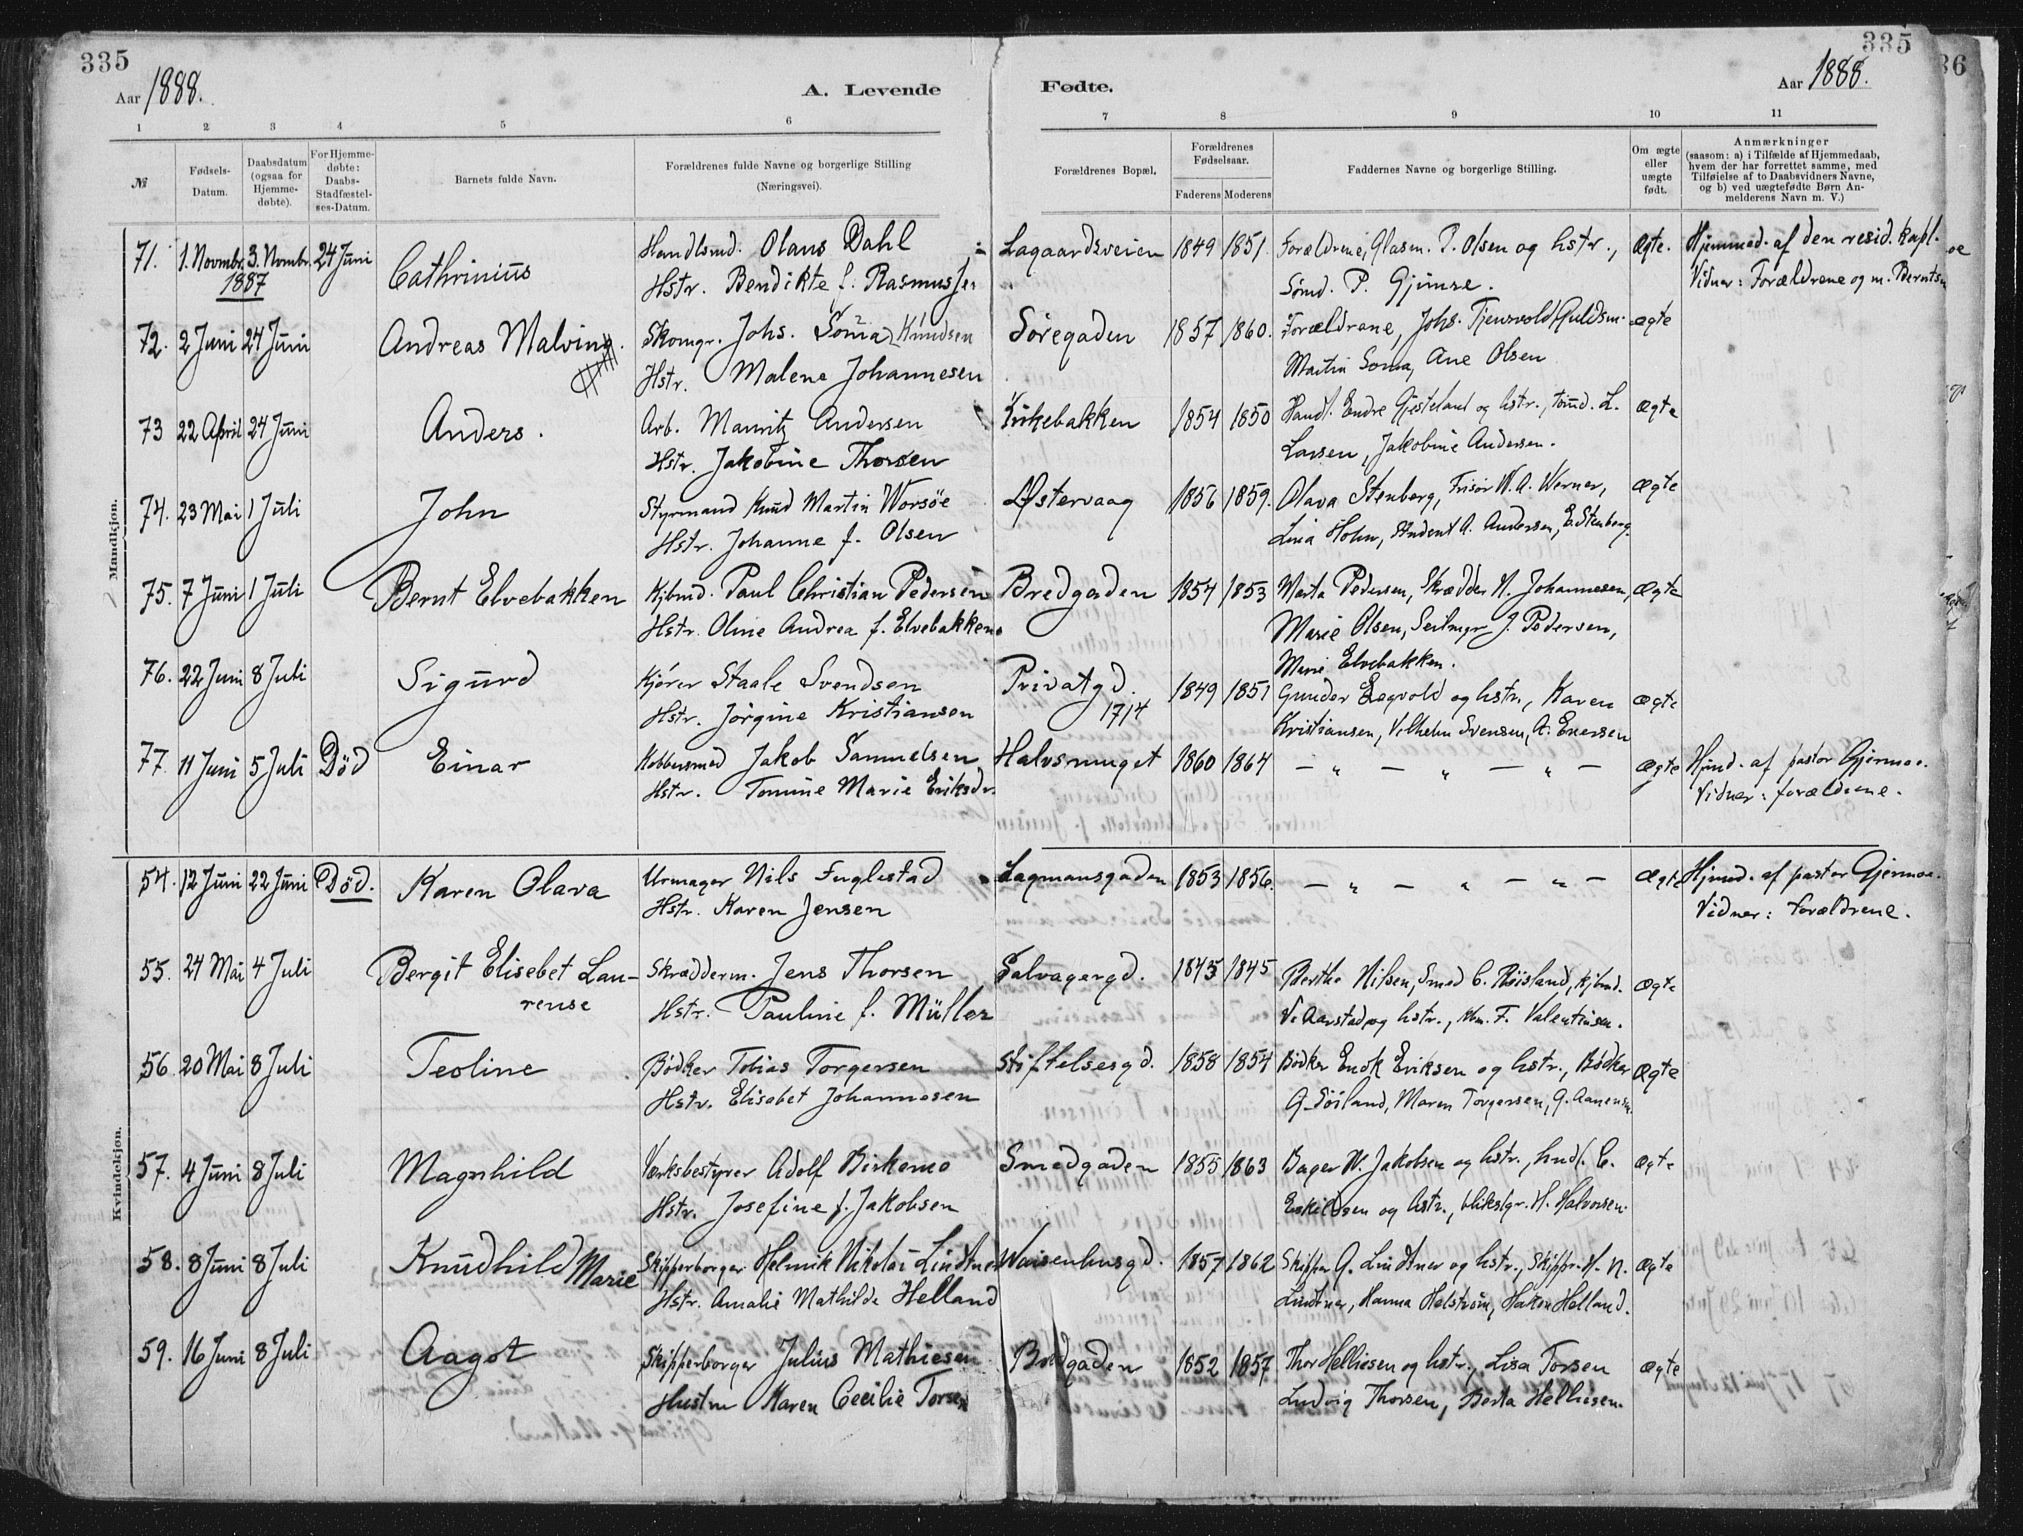 335
335
36
Aar 1888.
A. Levende
Fødte.
Aar 1888.
1 2 3 4 5 6 7 8 9 10 11
№
Fødsels-Datum.
Daabsdatum (ogsaa for Hjemme-døbte).
For Hjemme-døbte: Daabs-Stadfæstel-ses-Datum.
Barnets fulde Navn.
Forældrenes fulde Navne og borgerlige Stilling (Næringsvei).
Forældrenes Bopæl.
Forældrenes Fødselsaar.
Faderens Moderens
Faddernes Navne og borgerlige Stilling.
Om ægte eller uægte født.
Anmærkninger
(saasom: a) i Tilfælde af Hjemmedaab, hvem der har forrettet samme, med Tilføielse af to Daabsvidners Navne, og b) ved uægtefødte Børn An-melderens Navn m. V.)
Mandkjøn.
71. 1. Novmbr. 3. Novmbr. 24 Juni Handlsmd. Olaus Dahl Lagaardsveien 1849 1851. Forældrene, Glasm. P. Olsen og hstr., Ægte. Hjemmed. af den resid. kapl.
1887 Cathrinius Hstr. Bendikte f. Rasmussen Sømd. P. Gjimre. Vidner: Forældrene og m. Berntsen
72. 2 Juni 24 Juni Andreas Malving. Skomgr. Johs. Soma Knudsen Søregaden 1857 1860. Forældrene, Johs. Tjensvold, Guldsm. Ægte
Hstr. Malene Johannesen Martin Soma, Ane Olsen
73 22 April 24 Juni Anders. Arb. Mauritz Andersen Kirkebakken 1854 1850 Handl. Endre Gjesteland og hstr., tømd. L. Ægte
Hstr. Jakobine Thorsen Larsen, Jakobine Andersen.
74. 23 Mai 1 Juli John Styrmand Knud Martin Worsöe Østervaag 1856 1859. Olava Stenberg, Frisør W. A. Werner, Ægte
Hstr. Johanne f. Olsen Lina Holm, Student A. Andersen, E. Stenberg.
75. 7 Juni 1 Juli Bernt Elvebakken Kjbmd. Paul Christian Pedersen Bredgaden 1854 1853 Marta Pedersen, Skrædder N. Johannesen, Ægte
Hstr. Oline Andrea f. Elvebakken Marie Olsen, Seilmgr. J. Pedersen,
Marie Elvebakken.
76. 22 Juni 8 Juli Sigurd Kjører Staale Svendsen Privatgd. 1849 1851 Gunder Eegvold og hstr., Karen Ægte
Hstr. Jörgine Kristiansen 1714 Kristiansen, Vilhelm Svensen, A. Enersen
77. 11 Juni 5 Juli Død Einar Kobbersmed Jakob Samuelsen Halvsmuget 1860 1864 — „ — „ — „ — Ægte Hjmd. af pastor Gjermoe.
Hstr. Tomine Marie Eriksdr. Vidner: forældrene.
Kvindekjøn.
54. 12 Juni 22 Juni Død. Karen Olava Urmager Nils Fuglestad Lagmansgaden 1853 1856. — „ — „ — „ — Ægte Hjmd. af pastor Gjermoe.
Hstr. Karen Jensen Vidner: Forældrene.
55. 24 Mai 4 Juli Bergit Elisebet Lau- Skrædderm. Jens Thorsen Salvagergd. 1845 1845 Berthe Nilsen, Smed C. Røisland, kjbmd. Ægte
rense Hstr. Pauline f. Müller V. Aarstad og hstr., Kbm. F. Valentinsen.
56. 20 Mai 8 Juli Teoline Bødker Tobias Torgersen Stiftelsesgd. 1858 1854 Bødker Endk Eriksen og hstr., Bödker Ægte
Hstr. Elisabet Johannesen G. Söiland, Maren Torgersen, G. Aanensen
57. 4 Juni 8 Juli Magnhild Værksbestyrer Adolf Birkemo Smedgaden 1855 1863 Bager W. Jakobsen og hstr., hndl. C. Ægte
Hstr. Josefine f. Jakobsen Eskildsen og hstr., blikslgr. H. Halvorsen.
58. 8 Juni 8 Juli Knudhild Marie Skipperborger Helmik Nikolai Lindtner Waisenhusgd. 1857 1862 Skipper G. Lindtner og hstr., Skippr. H. N. Ægte
Hstr. Amalie Mathilde Helland Lindtner, Hanna Helström, Hakon Helland.
59. 16 Juni 8 Juli Aagot Skipperborger Julius Mathiesen Bredgaden 1852 1857. Thor Helliesen og hstr., Lisa Torsen Ægte
Hustru Karen Cecilie Torsen Ludvig Thorsen, Berta Helliesen.